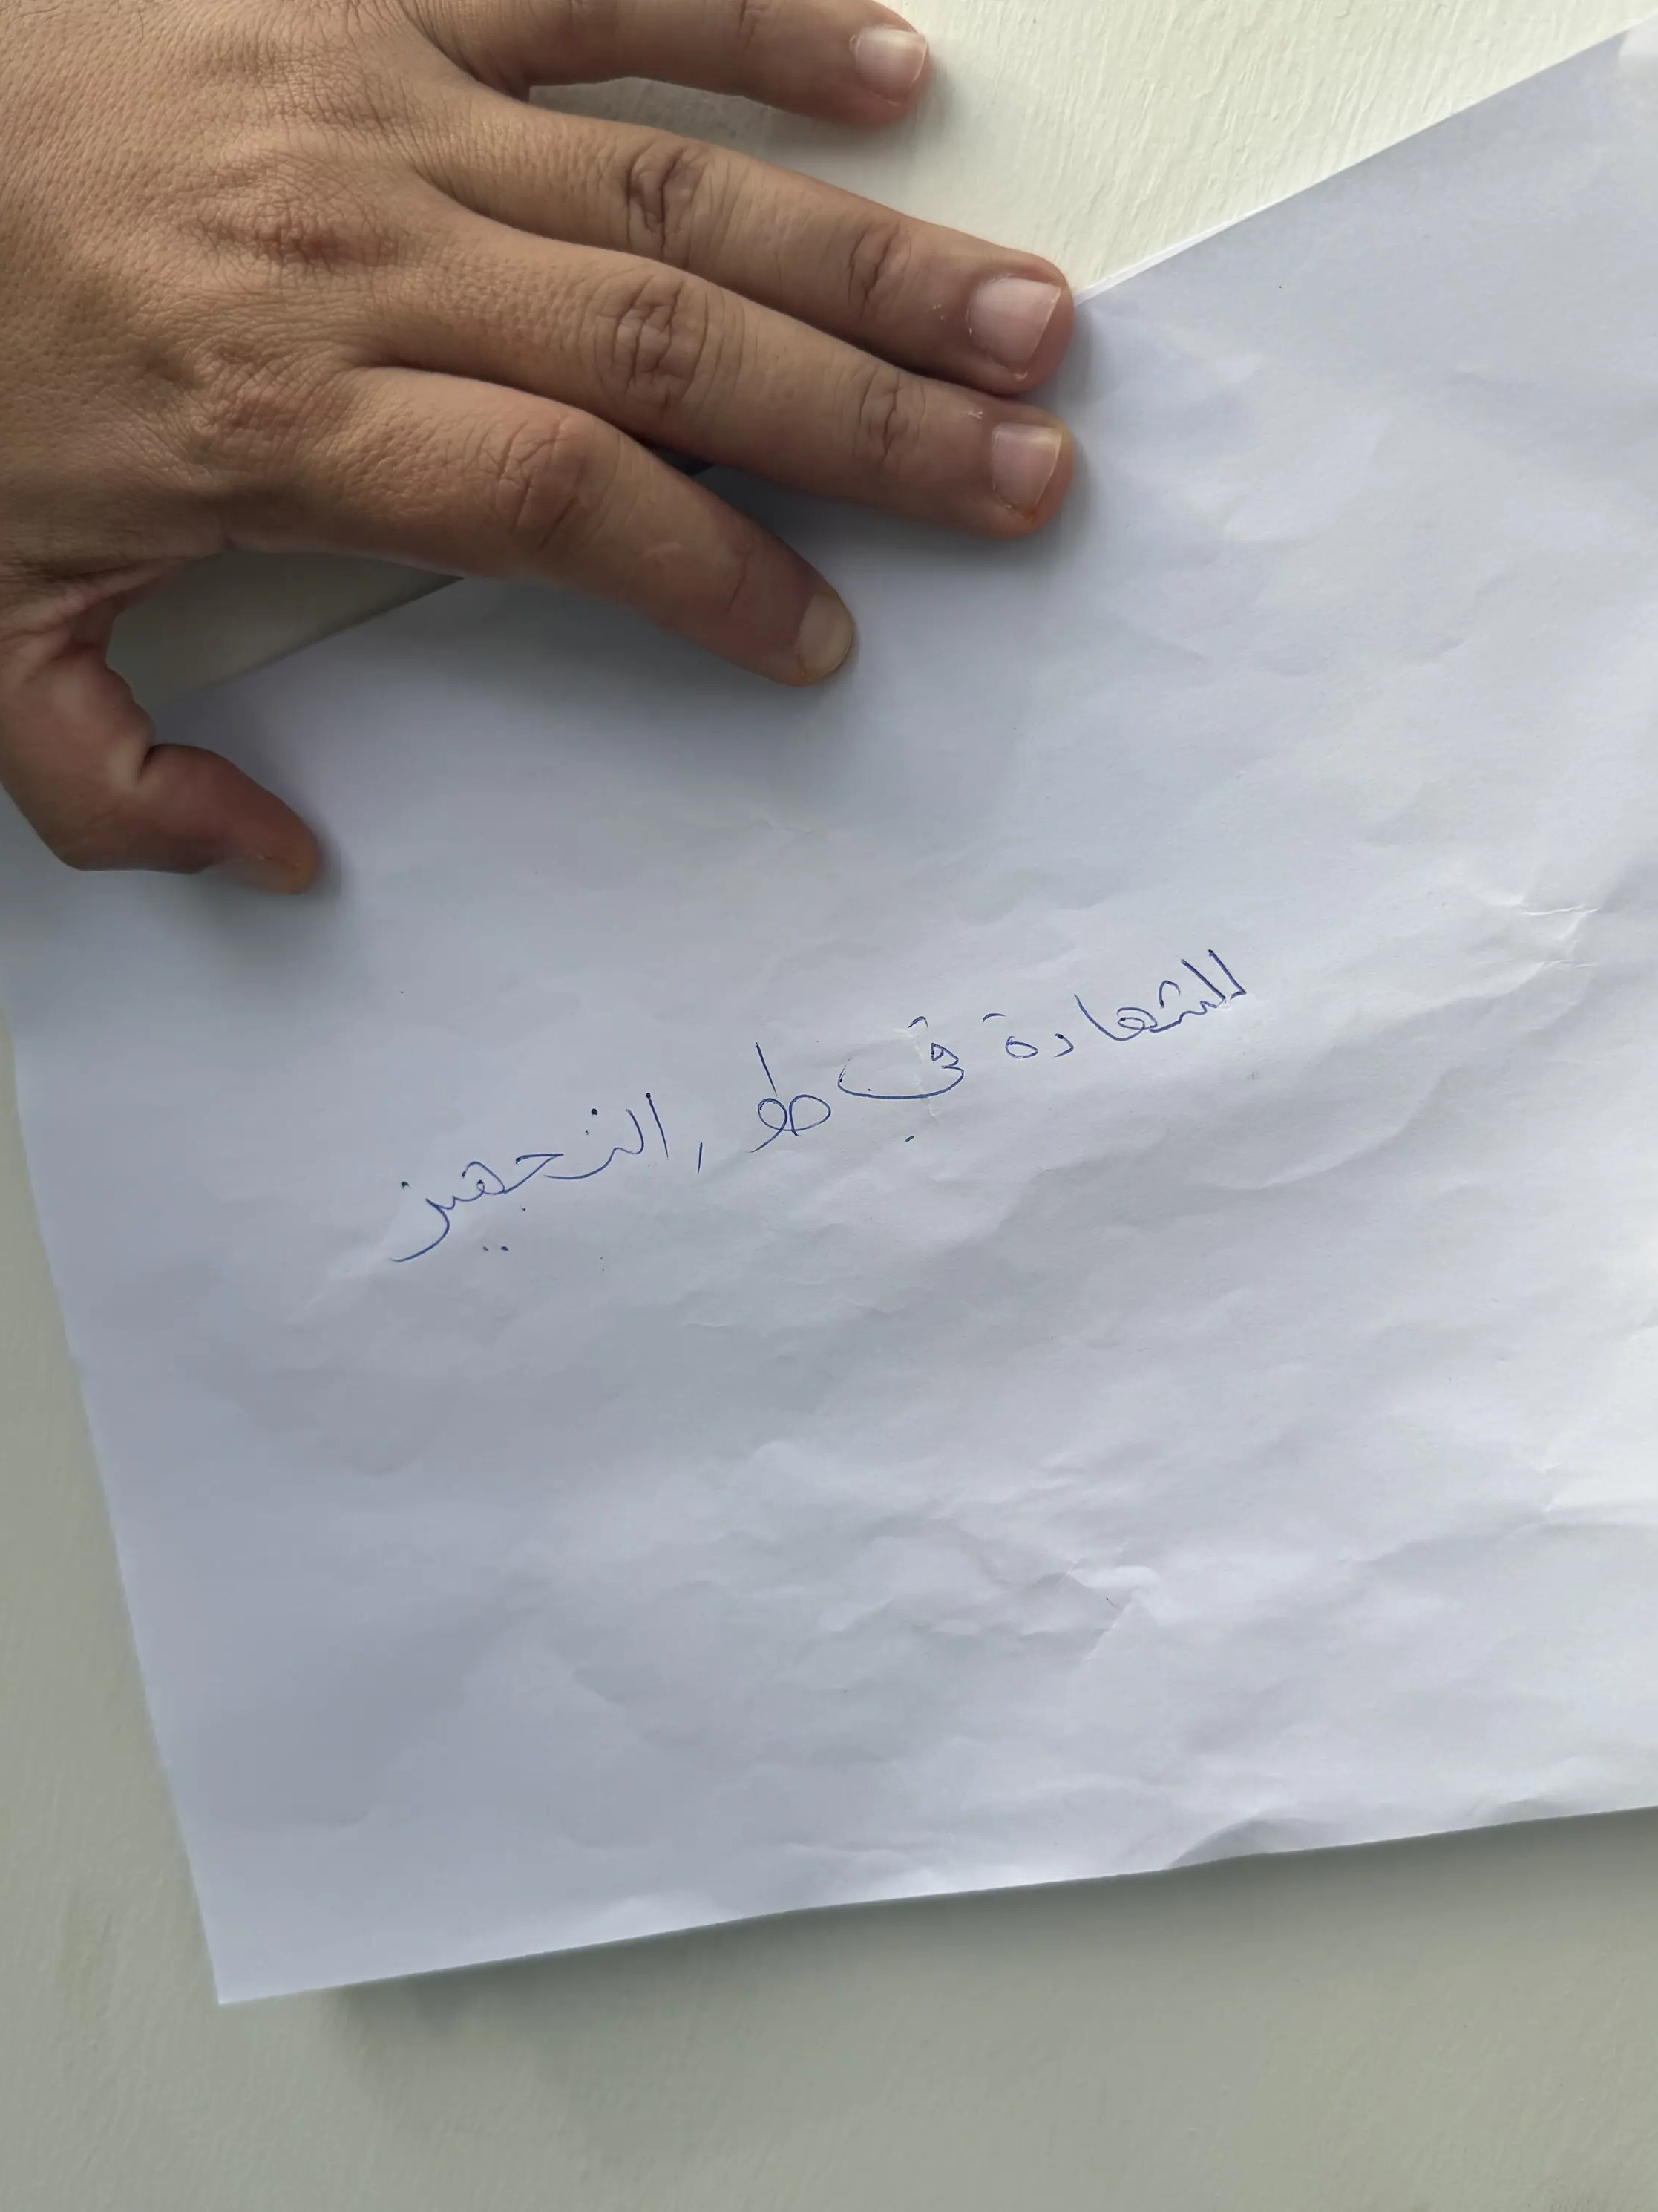 الشهادة في طور التجهيز